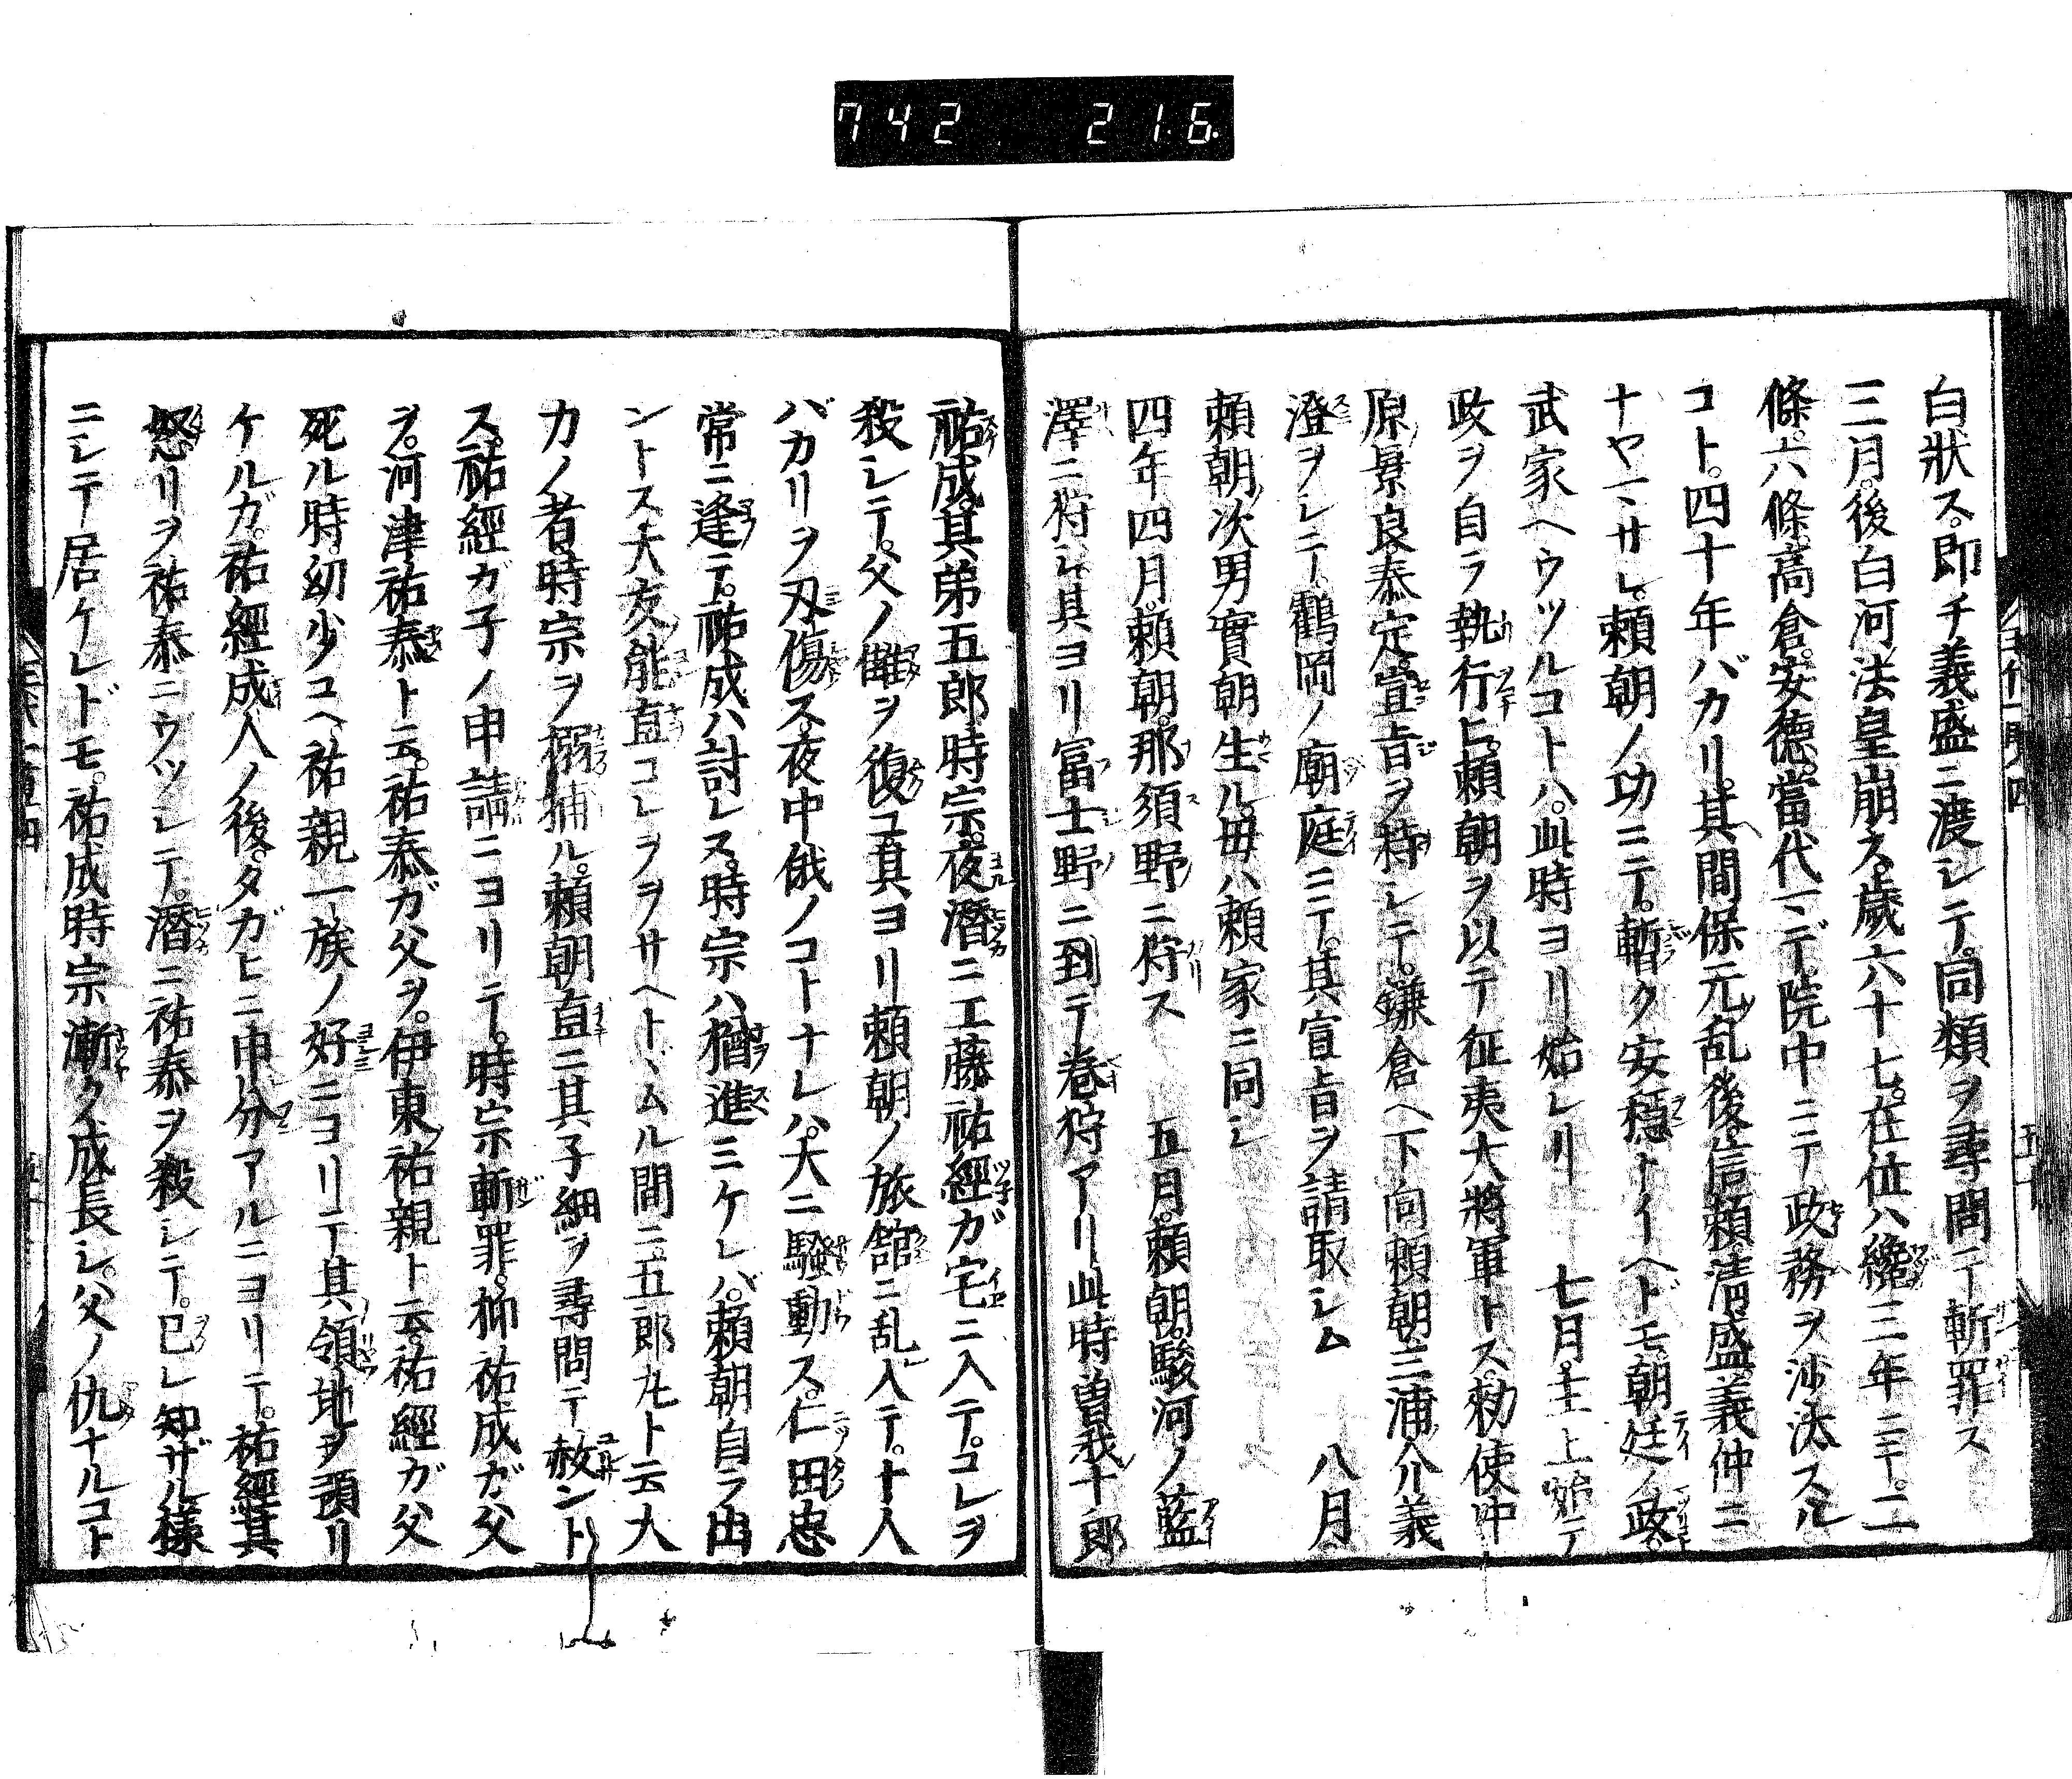 742 216
白狀ス。即チ義盛ニ渡シテ。同類ヲ尋問テ斬罪ス
三月。後白河法皇崩ス。歲六十七。在位ハ纔三年ニテ。二
條。六條。高倉。安德。當代マデ院中ニテ政務ヲ沙汰スル
コト。四十年バカリ。其間保元ノ乱後。信頼清盛。義仲ニ
ナヤマサレ。頼朝ノ功ニテ。暫ク安穏トイヘドモ。朝廷ノ政。
武家ヘウツルコトハ。此時ヨリ始レリ 七月。主上始テ
政ヲ自ラ執行ヒ。頼朝ヲ以テ征夷大將軍トス。勅使中
原景良。泰定。宣旨ヲ持シテ。鎌倉ヘ下向頼朝。三浦介義
澄ヲシテ。鶴岡ノ廟庭ニテ。其宣旨ヲ請取シム 八月
頼朝ノ次男實朝生ル。毋ハ頼家ニ同シ
四年四月。頼朝。那須野ニ狩ス 五月。頼朝。駿河ノ藍
澤ニ狩シ其ヨリ冨士野ニ到テ卷狩アリ此時曽我十郎
祐成。其弟五郎時宗。夜潛ニ工藤祐經ガ宅ニ入テ。コレヲ
殺シテ。父ノ雠ヲ復ユ其ヨリ頼朝ノ旅舘ニ乱入テ。十人
バカリヲ刄傷ス。夜中俄ノコトナレハ。大ニ騷動ス。仁田忠
常ニ逢テ。祐成ハ討レヌ。時宗ハ猶進ミケレバ。頼朝自ラ出
ントス大友能直コレヲヲサヘトヾムル間ニ五郎丸ト云大
カノ者。時宗ヲ搦捕ル。頼朝直ニ其子細ヲ尋問テ赦ント
ス。祐經ガ子ノ申請ニヨリテ。時宗斬罪。抑祐成ガ父
ヲ。河津祐泰ト云。祐泰ガ父ヲ。伊東祐親ト云。祐經ガ父
死ル時。幼少ユヘ。祐親一族ノ好ニヨリテ其領地ヲ預リ
ケルガ。祐經成人ノ後。タガヒニ申分アルニヨリテ。祐經其
怒リヲ祐泰ニウツシテ。潛ニ祐泰ヲ殺シテ。己レ知ザル樣
ニシテ居ケレドモ。祐成時宗漸ク成長シ。父ノ仇ナルコト